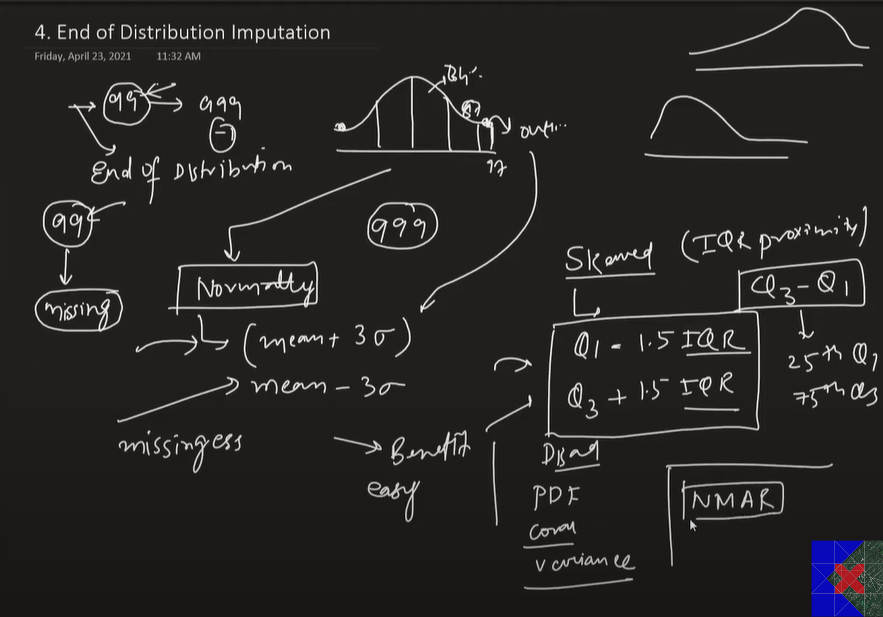 4. End of Distribution Imputation
Friday, April 23, 2021 11:32 AM
99 → 999
End of Distribution
99
missing
17
999
Normally
(mean + 3σ)
mean - 3σ
missingess
Benefit
easy
Skewed (IQR proximity)
Q3 - Q1
Q1 - 1.5 IQR
Q3 + 1.5 IQR
25th Q1
75th Q3
PDF
Variance
NMAR